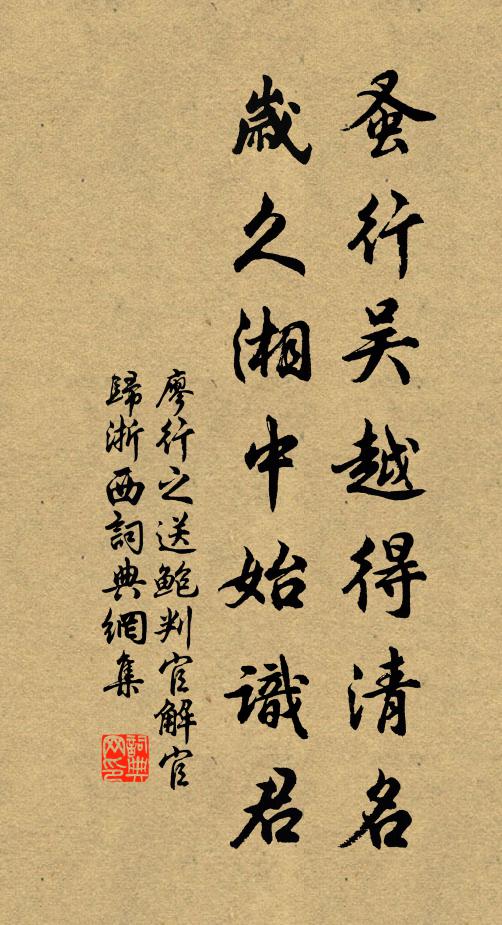 蚤行吴越得清名
歲久湘中始識君
廖行之送鮑判官解官
歸浙西詞典網集
詞典网印